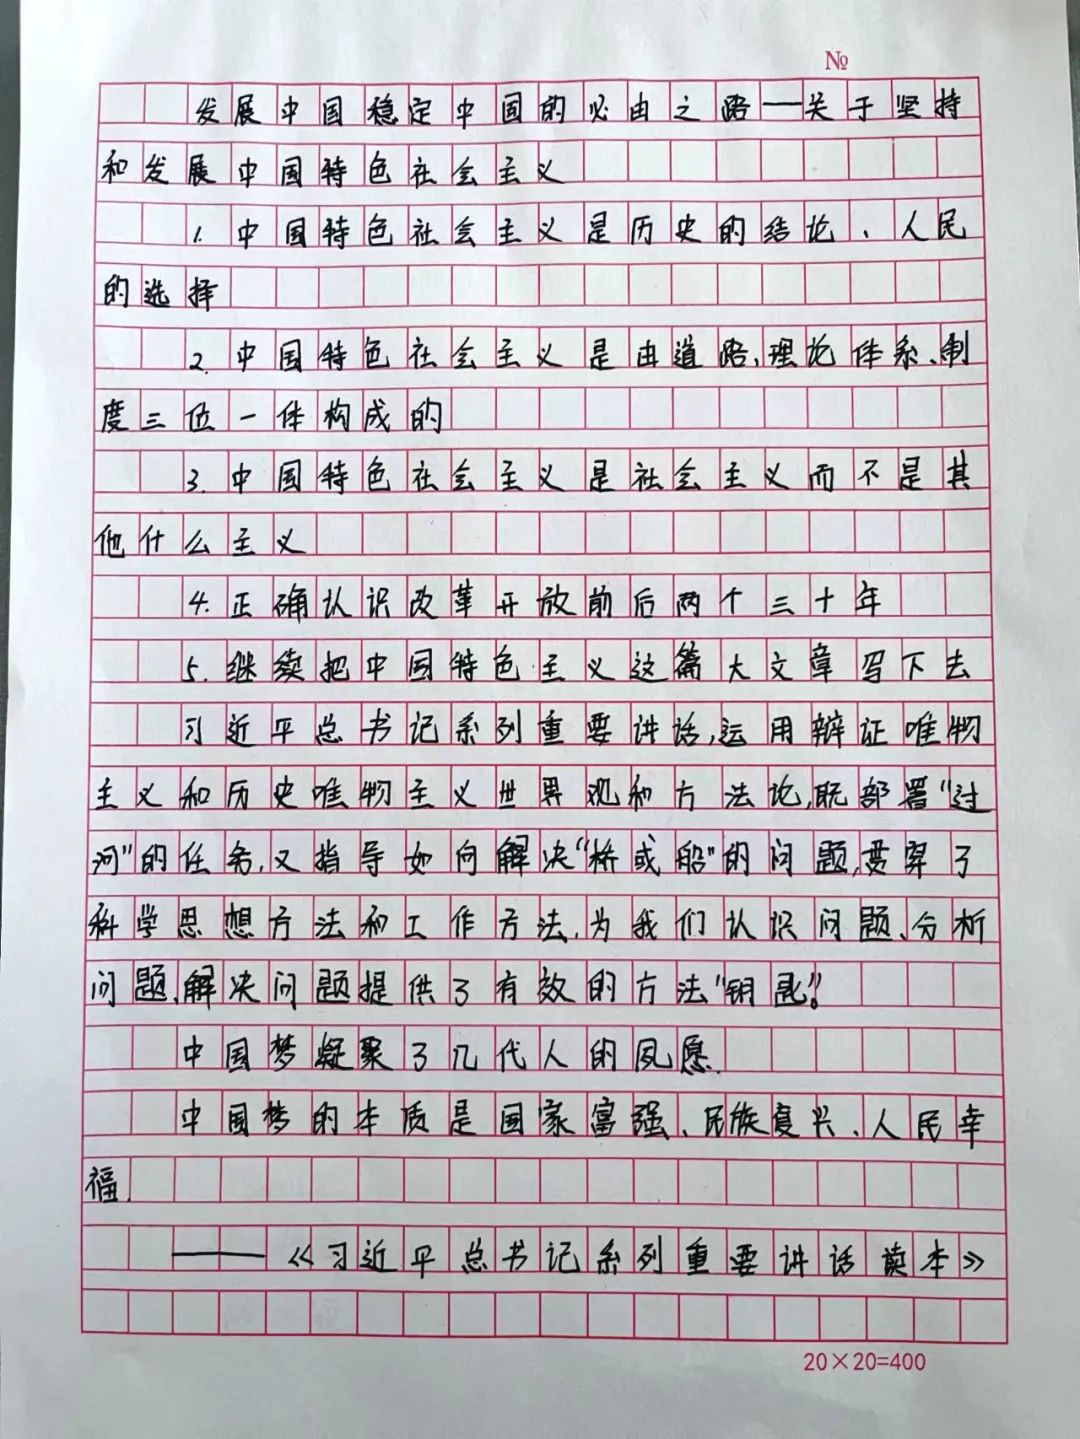 №
发展中国稳定中国的必由之路——关于坚持
和发展中国特色社会主义
1.中国特色社会主义是历史的结论、人民
的选择
2.中国特色社会主义是由道路,理论体系、制
度三位一体构成的
3.中国特色社会主义是社会主义而不是其
他什么主义
4.正确认识改革开放前后两个三十年
5.继续把中国特色主义这篇大文章写下去
习近平总书记系列重要讲话,运用辩证唯物
主义和历史唯物主义世界观和方法论,既部署“过
河”的任务,又指导如何解决“桥或船”的问题,贯穿了
科学思想方法和工作方法,为我们认识问题、分析
问题、解决问题提供了有效的方法“钥匙”。
中国梦凝聚了几代人的夙愿.
中国梦的本质是国家富强、民族复兴、人民幸
福.
——《习近平总书记系列重要讲话读本》
20×20=400